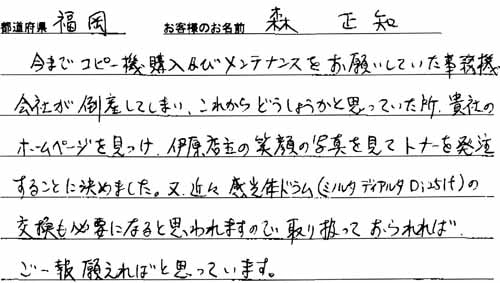 都道府県 福岡 お客様のお名前 森 正知
今までコピー機購入及びメンテナンスをお願いしていた事務機
会社が倒産してしまい、これからどうしようかと思っていた所、貴社の
ホームページを見つけ、伊原店主の笑顔の写真を見てトナーを発注
することに決めました。又、近々感光体ドラム(ミノルタディアルタDi251f)の
交換も必要になると思われますので、取り扱っておられれば、
ご一報願えればと思っています。